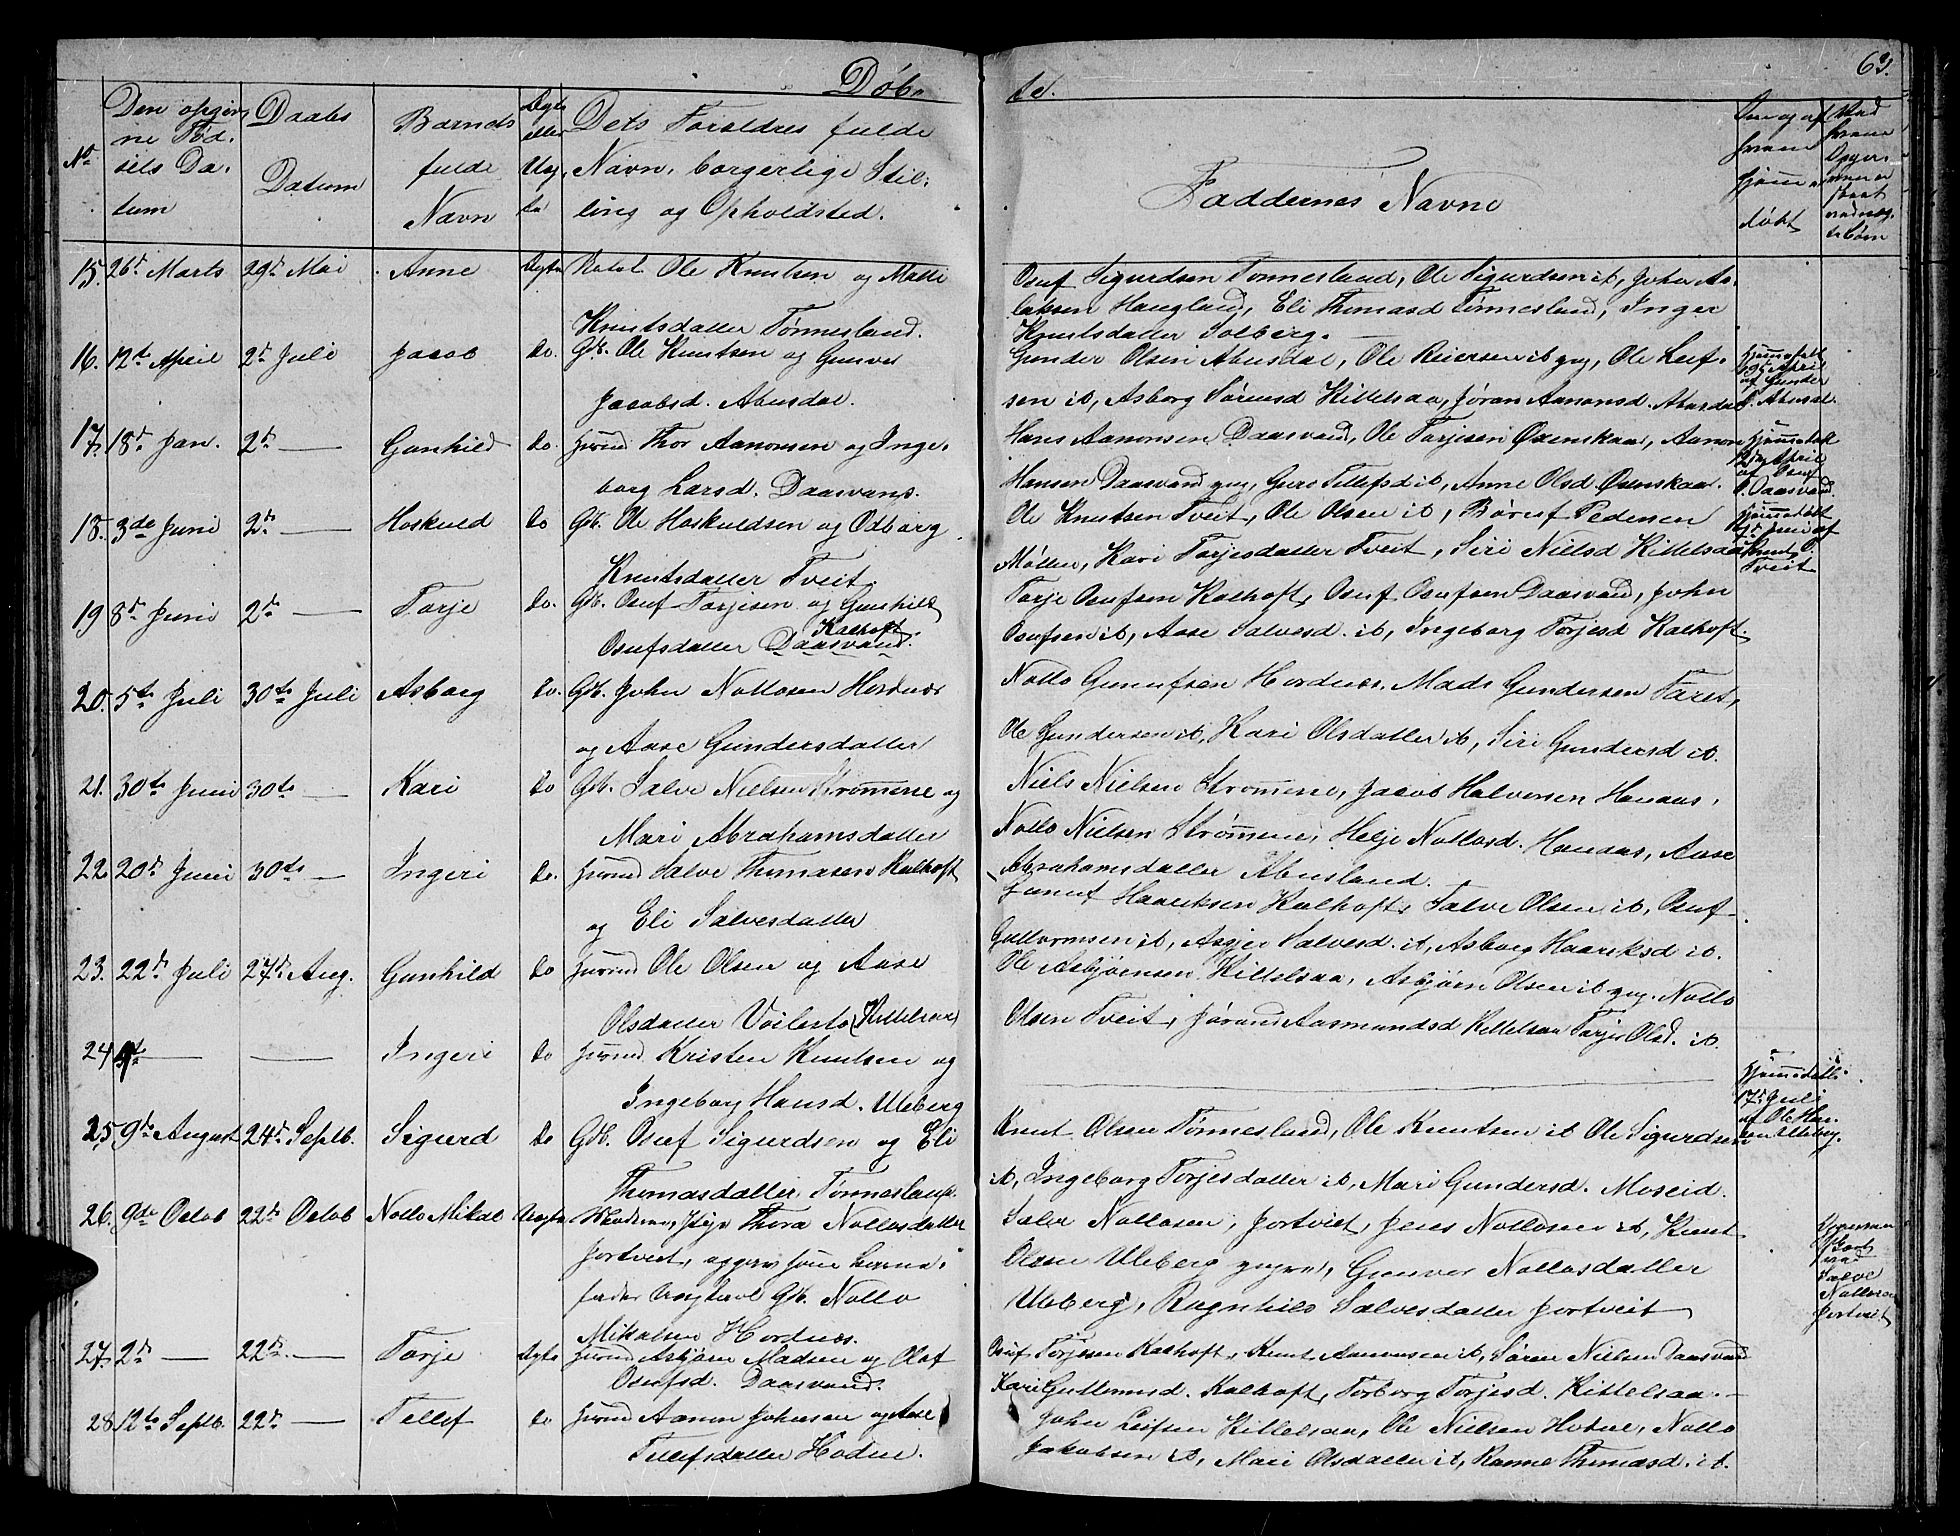 Døb-
te.
63.
No
Den opgiv
ne Fød-
sels Da-
tum
Daabs
Datum
Barnets
fulde
Navn
Ægte
eller
Uæg-
te
Dets Forældres fulde
Navn, borgerlige Stil-
ling og Opholdsted.
Faddernes Navne
hvem
hjemme
døbt
15. 26d Marts 29d Mai Anne Ægte Ole Knutsen og Malli
Knutsdatter Tønnesland.
Osuf Sigurdsen Tønnesland, Ole Sigurdsen ib, John As-
laksen Haugland, Eli Thomasd Tønnesland, Inger
Knutsdatter Solberg.
16. 12te April 2d Juli Jacob do. Gb. Ole Knutsen og Gunver
Jacobsd. Abusdal.
Gunder Olsen Abusdal, Ole Reiersen ib gug, Ole Leif-
sen ib, Asborg Sørensd Kittelsaa, Jøran Aanonsd. Abusdal
hjemmedøbt
19d April
af Gunder
O. Abusdal.
17. 18d Jan. 2d — Gunhild do. Thor Aanonsen og Inge-
borg Larsd. Daasvans.
Hans Aanonsen Daasvand, Ole Torjesen Øxenskaar, Aanon
Hansen Daasvand gug, Guro Tellefsd ib, Anne Olsd Øxenskaar.
hjemmedøbt
April
af Osuf
O. Daasvand.
18. 3de Juni 2d — Hoskuld do Gb. Ole Hoskuldsen og Odborg
Knutsdatter Tveit.
Ole Knutsen Tveit, Ole Olsen ib, Børuf Pedersen
Møllen, Kari Torjesdatter Tveit, Siri Nielsd Kittelsaa
hjemmedøbt
Juni af
Knut O.
Tveit
19 8d Juni 2d — Torje do. Gb. Osuf Torjesen og Gunhild
Kalhoft
Osufsdatter Daasvand.
Torje Osufsen Kalhoft, Osuf Osufsen Daasvand, John
Osufsen ib, Aase Salvesd. ib, Ingeborg Torjesd Kalhoft.
20. 5te Juli 30te Juli Asborg do. Gb. John Nottosen Hordnæs
og Aase Gundersdatter
Notto Gunufsen Hordnæs, Mads Gundersen Faret,
Ole Gundersen ib, Kari Olsdatter ib, Siri Gundersd ib.
21. 30te Juni 30te — Kari do Gb. Salve Nielsen Strømene og
Mari Abrahamsdatter
Niels Nielsen Strømene, Jacob Halvorsen Hanaas,
Notto Nielsen Strømene, Helje Nottosd. Hanaas, Aase
Abrahamsdatter Abusland.
22. 20d Juni 30te — Ingeri do. Salve Thomasen Kalhoft
og Eli Salvesdatter
Gunuf Haariksen Kalhoft, Salve Olsen ib, Osuf
Guttormsen ib, Asgjer Salvesd. ib, Asborg Haariksd ib.
23. 22d Juli 27d Aug. Gunhild do Ole Olsen og Aase
Olsdatter Voilesto (Kittelsaa)
Ole Asbjørnsen Kittelsaa, Asbjørn Olsen ib gug. Notto
Olsen Tveit, Jørand Aasmundsd Kittelsaa Torjer Olsd. ib.
24 — — Ingeri do Kristen Knutsen og
Ingeborg Hansd. Uleberg
hjemmedøbt
17d Juli
af Ole Han-
sen Uleberg.
25 9de August 24d Septb. Sigurd do Gb. Osuf Sigurdsen og Eli
Thomasdatter Tønnesland.
Knut Olsen Tønnesland, Ole Knutsen ib Ole Sigurdsen
ib, Ingeborg Torjesdatter ib, Mari Gundersd. Moseid.
26. 9de Octob 22d Octob Notto Mikal Uægte Pige Thora Nottosdatter
Jortveit, opgiven som Barne-
fader Gb. Notto
Mikalsen Hordnæs.
Salve Nottosen, Jortveit, Jens Nottosen ib, Knut
Olsen Uleberg gug, Gunver Nottosdatter
Uleberg, Ragnhild Salvesdatter Jortveit
Salve
Nottosen
Jortveit
27. 2d — 22d — Torje Ægte Asbjørn Madsen og Olaf
Osufsd. Daasvand.
Osuf Torjesen Kalhoft, Knut Aanonsen ib, Søren Nielsen Daasvand
Kari Guttormsd. Kalhoft, Torborg Torjesd. Kittelsaa.
28. 12te Septb. 22d — Tellef do Aanon Johnsen og Aase
Tellefsdatter Hodne.
John Leifsen Kittelsaa, Ole Nielsen Hodne, Notto
Jakobsen ib, Mari Olsdatter ib, Ranne Thomasd. ib.